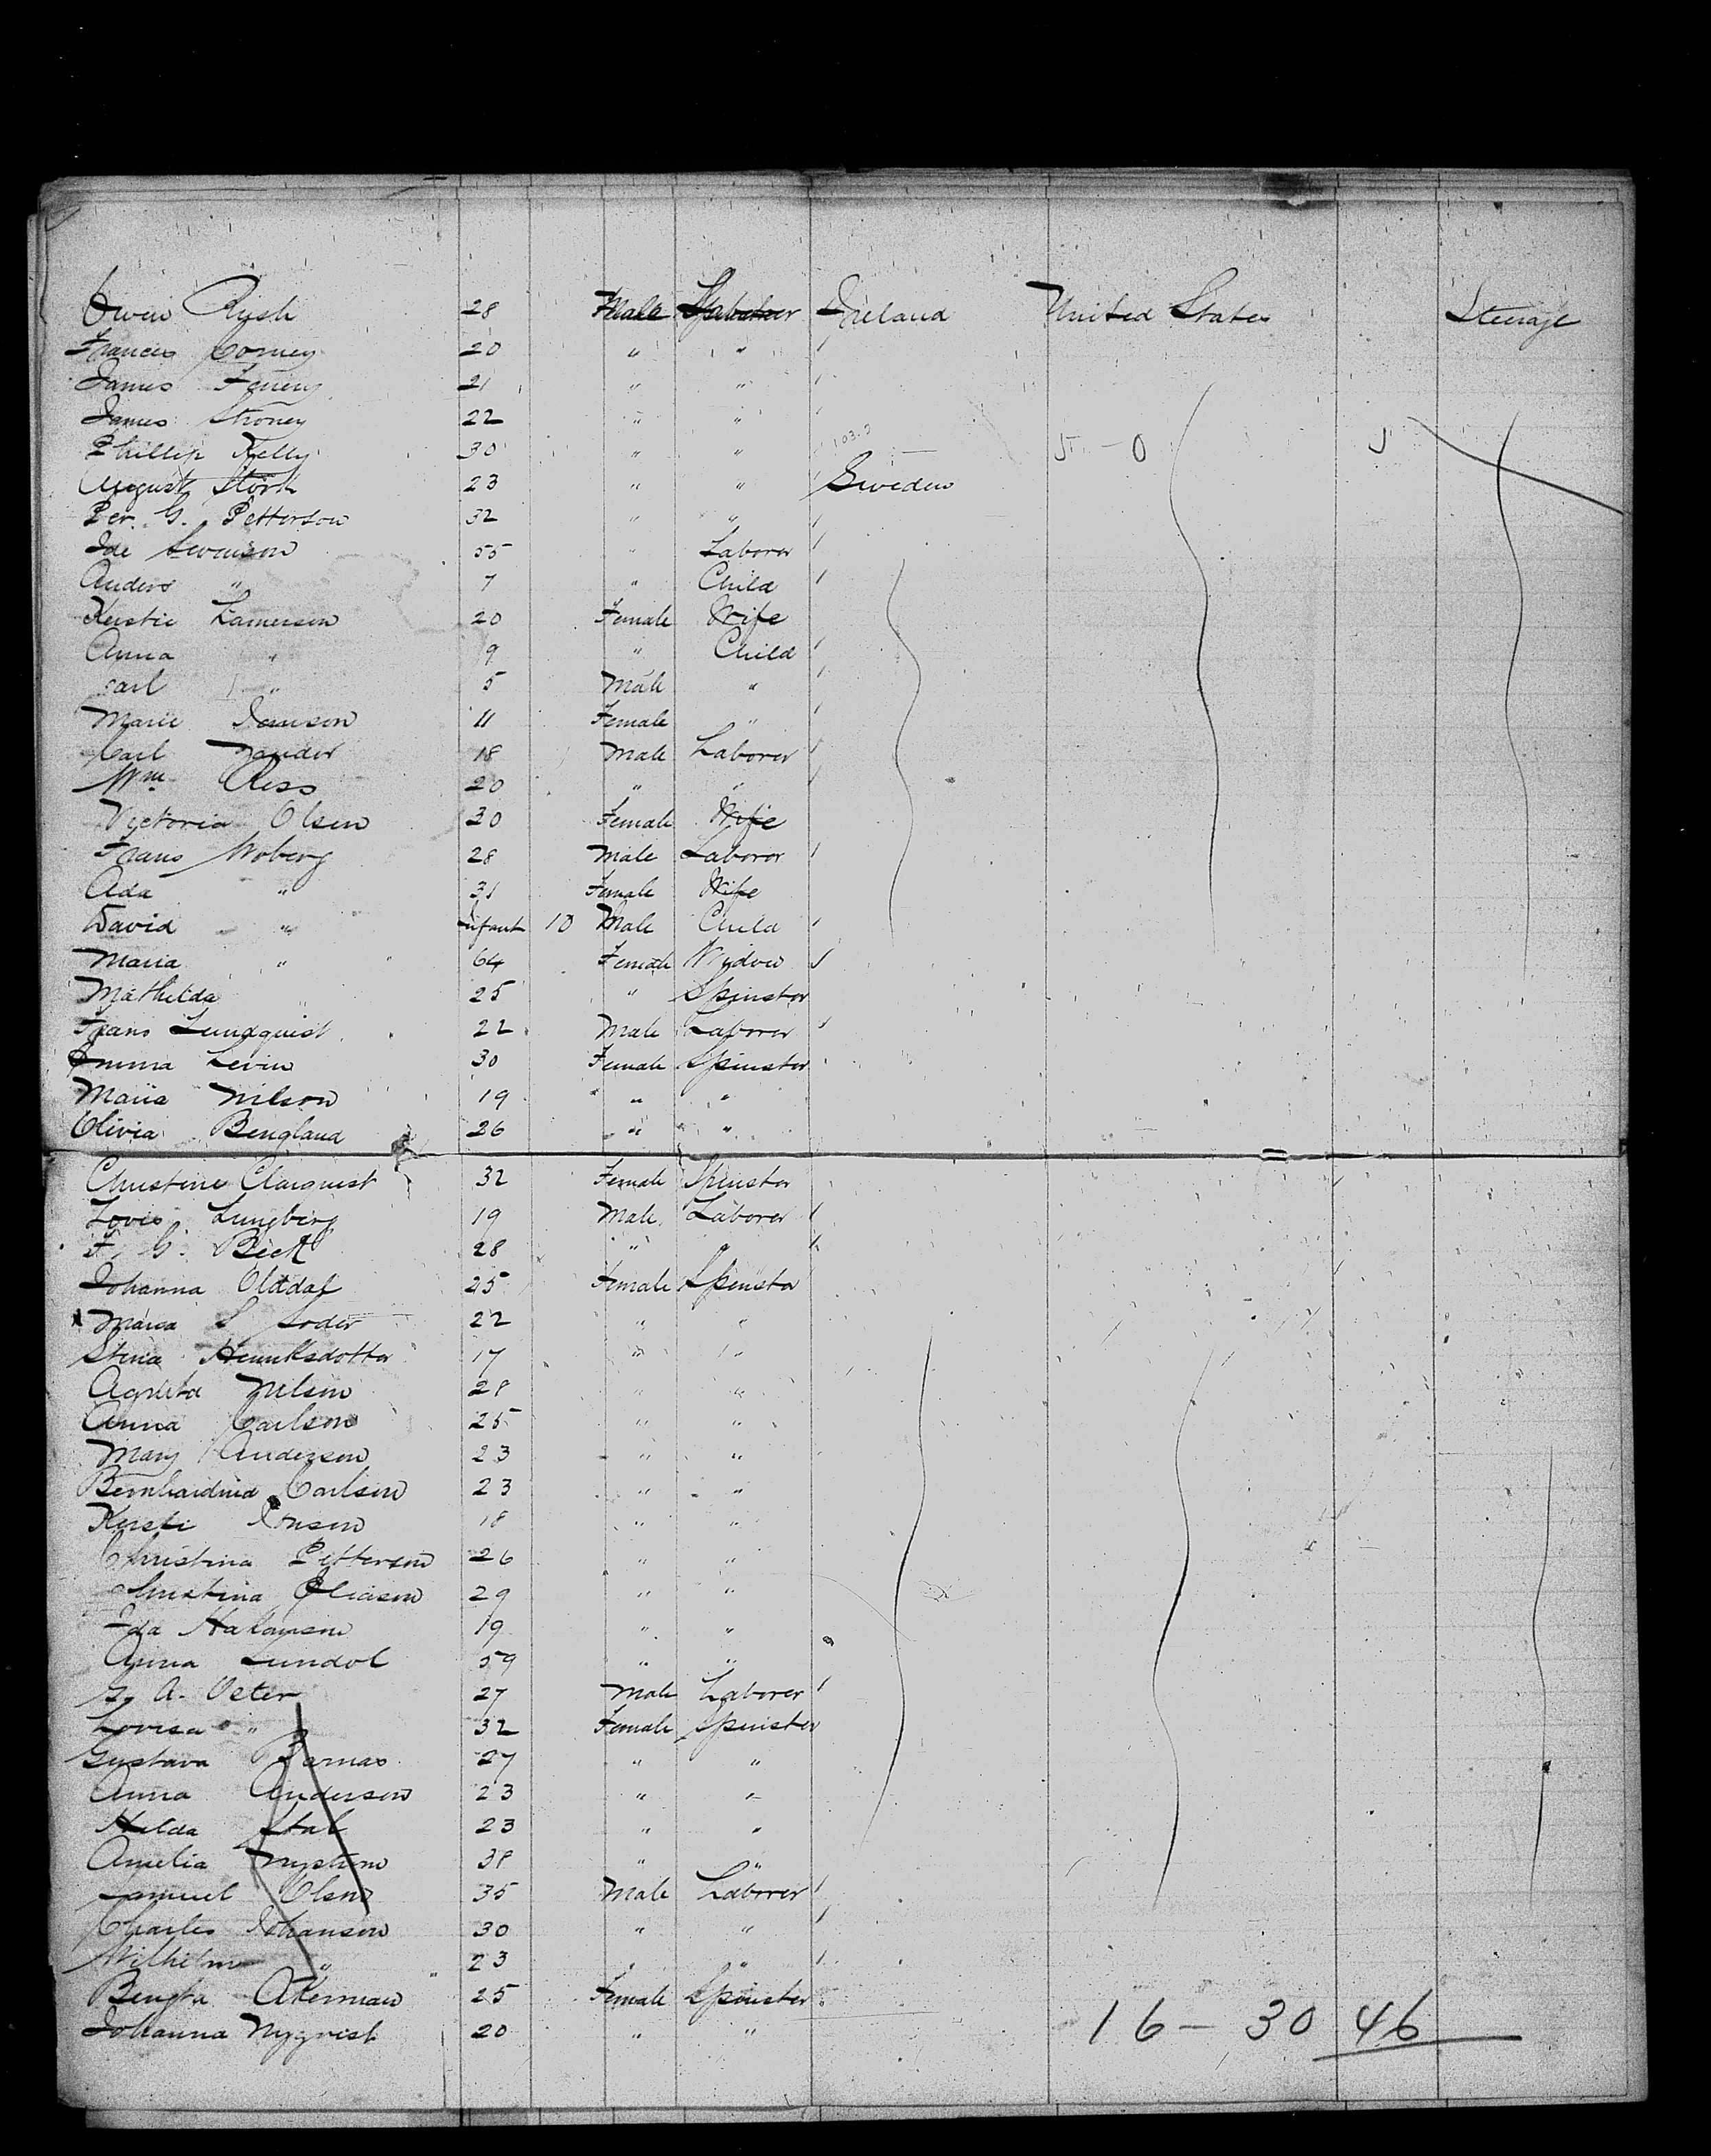 Owen Rush 28 Male Laborer Ireland United States Steerage
Francis Corney 20 " "
James 21 " "
James Stroney 22 " "
Phillip Kelly 30 " " 5 - 0 5
August Stork 23 " " Sweden
Per. G. Petterson 32 " "
Swenson 55 " Laborer
Anders " 7 " Child
Kerstie 20 Female Wife
Anna " 9 " Child
Carl " 5 Male "
Marie 11 Female "
Carl 18 Male Laborer
Wm 20 " "
Victoria Olsen 30 Female Wife
Frans Moberg 28 Male Laborer
Ada " 31 Female Wife
David " Infant 10 Male Child
Maria " 64 Female Widow
Mathilda 25 " Spinster
Frans Lundquist 22 Male Laborer
Emma Levin 30 Female Spinster
Maria Nilson 19 " "
Olivia Bengland 26 " "
Christine Claiquist 32 Female Spinster
Lovis Lungberg 19 Male Laborer
F. G. Beck 28 " "
Johanna 25 Female Spinster
Maria S Soder 22 " "
Stina Henriksdotter 17 " "
Agneta Nilson 28 " "
Anna Carlson 25 " "
Mary Anderson 23 " "
Bernhardina Carlson 23 " "
Kersti Jonson 18 " "
Christina Petterson 26 " "
Christina Eliason 29 " "
Ida Hakanson 19 " "
Anna Lundol 59 " "
G. A. Peter 27 Male Laborer
Lovisa " 32 Female Spinster
Gustava 27 " "
Anna Anderson 23 " "
Hilda Stal 23 " "
Amelia Nystrom 38 " "
Samuel Olson 35 Male Laborer
Charles Johanson 30 " "
Wilhelm " 23 " "
Bengta Akerman 25 Female Spinster
Johanna Nyqvist 20 " "
16 - 30 46